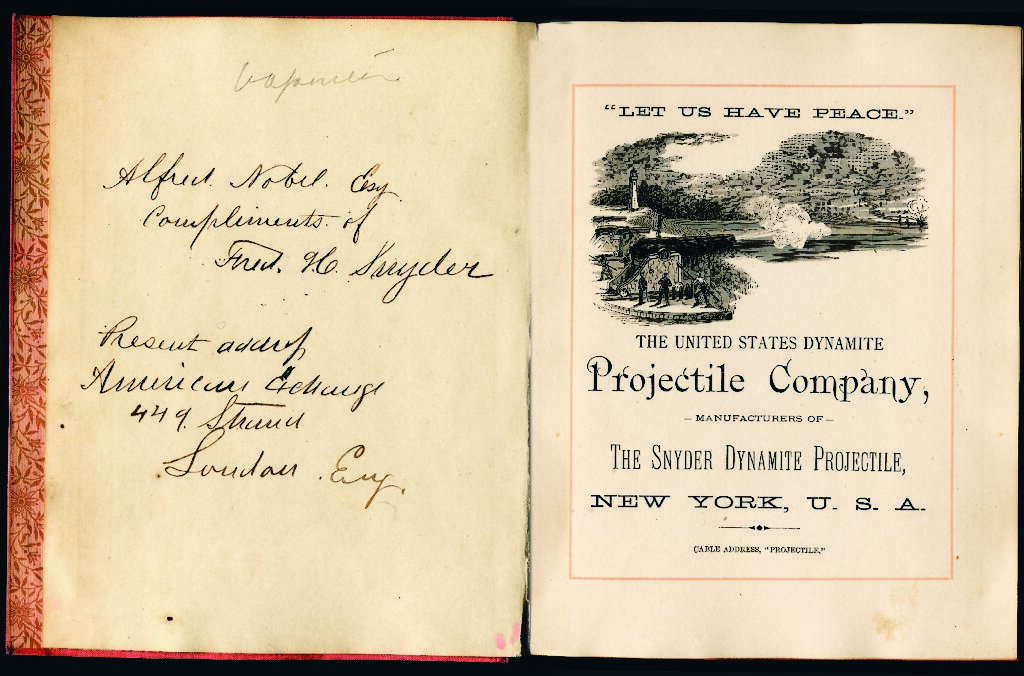 Alfred. Nobel. Esq
Compliments of
Fred. H. Snyder
Present address
American Exchange
449. Strand
London. Eng.
“LET US HAVE PEACE.”
THE UNITED STATES DYNAMITE
Projectile Company,
– MANUFACTURERS OF –
THE SNYDER DYNAMITE PROJECTILE,
NEW YORK, U. S. A.
CABLE ADDRESS, “PROJECTILE.”